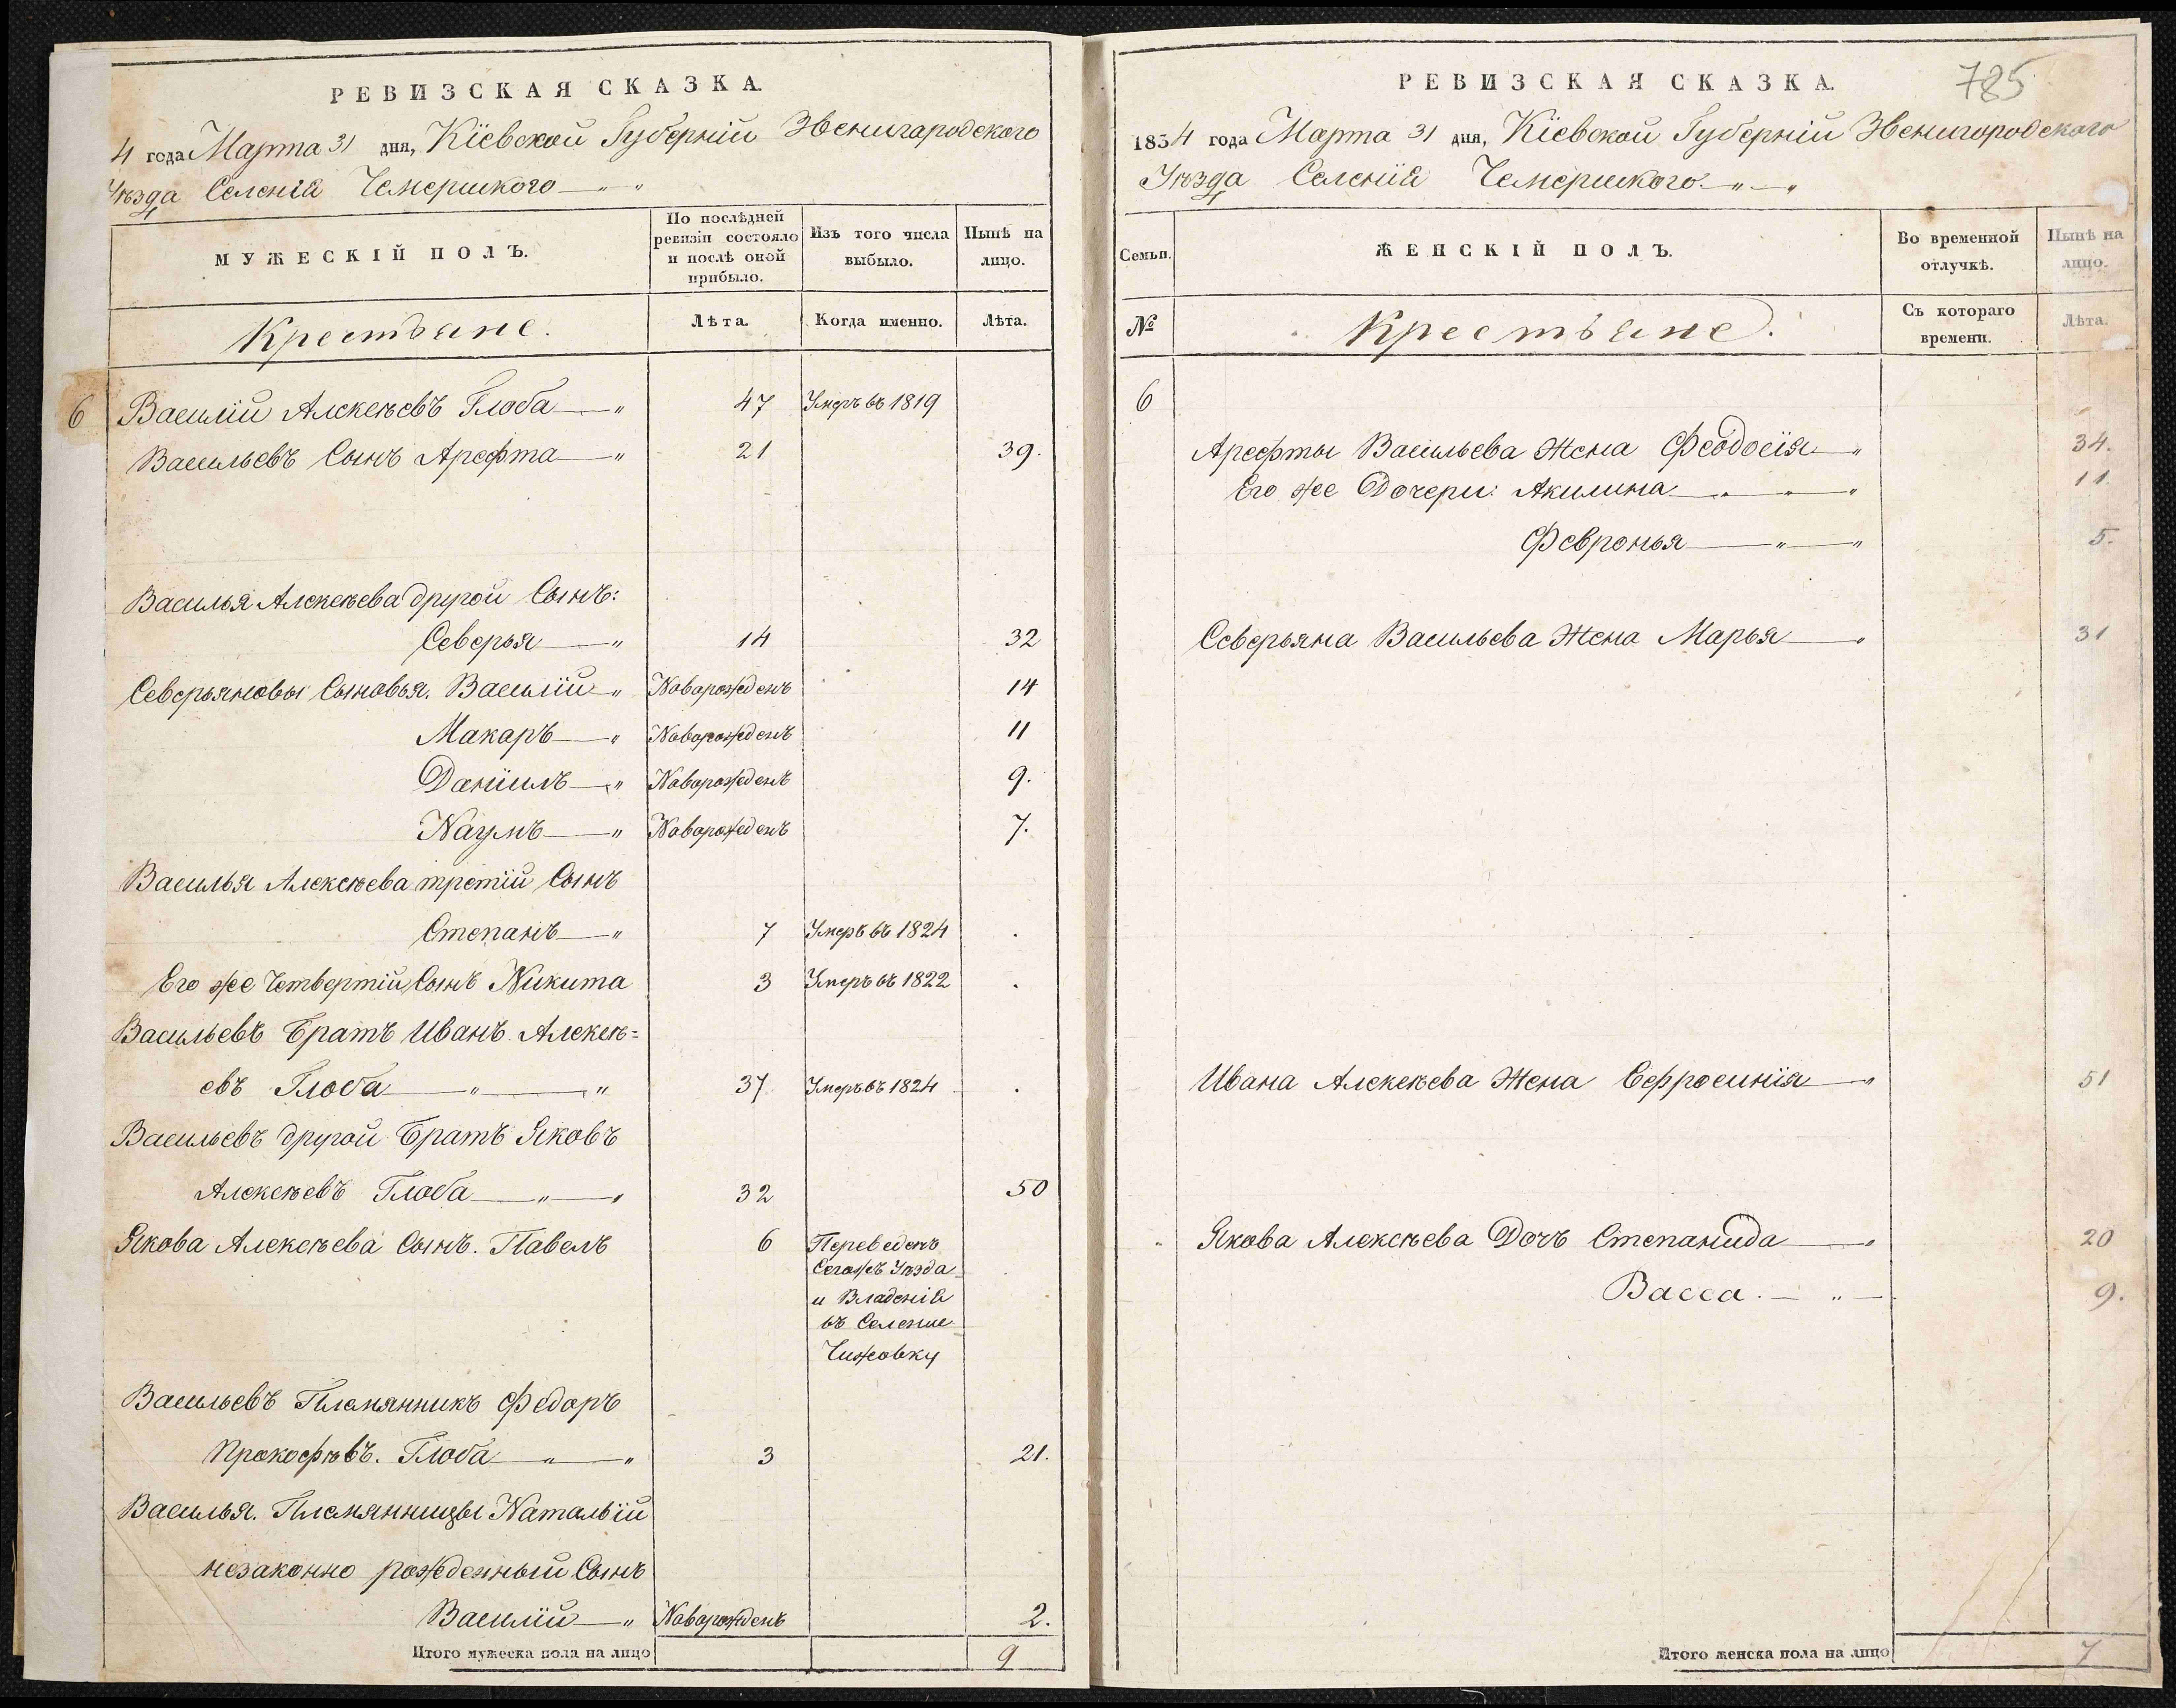 РЕВИЗСКАЯ СКАЗКА.
4 года Марта 31 дня, Кіевской Губерніи Звенигородского
Уѣзда Селенія Чемериского
МУЖЕСКІЙ ПОЛЪ.
По послѣдней ревизіи состояло и послѣ оной прибыло.
Изъ того числа выбыло.
Нынѣ на лицо.
Крестьяне.
Лѣта.
Когда именно.
Лѣта.
6 Василій Алексѣевъ Глоба 47 Умеръ въ 1819
Васильевъ Сынъ Арефта 21 39.
Василья Алексѣева другой Сынъ:
Северья 14 32
Северьяновы Сыновья. Василій Новорожденъ 14
Макаръ Новорожденъ 11
Даніилъ Новорожденъ 9.
Наумъ Новорожденъ 7.
Василья Алексѣева третій Сынъ
Степанъ 7 Умеръ въ 1824
Его же Четвертій Сынъ Никита 3 Умеръ въ 1822
Васильевъ Братъ Иванъ Алексѣ=
евъ Глоба 37 Умеръ въ 1824
Васильевъ другой Братъ Яковъ
Алексѣевъ Глоба 32 50
Якова Алексѣева Сынъ. Павелъ 6 Переведенъ
Сегожъ Уѣзда
и Владенія
въ Селение
Чижовку
Васильевъ Племянникъ Федоръ
Прокофѣвъ. Глоба 3 21.
Василья. Племянницы Наталыи
незаконно рожденный Сынъ
Василій Новорожденъ 2.
Итого мужеска пола на лицо 9
785
РЕВИЗСКАЯ СКАЗКА.
1834 года Марта 31 дня, Кіевской Губерніи Звенигородского
Уѣзда Селенія Чемериского
Семьи.
ЖЕНСКІЙ ПОЛЪ.
Во временной отлучкѣ.
Нынѣ на лицо.
№
Крестьяне.
Съ котораго времени.
Лѣта.
6
Арефты Васильева Жена Феодосія 34.
Его же Дочери: Акилина 11
Февронья 5.
Северьяна Васильева Жена Марья 31
Ивана Алексѣева Жена Ефросинія 51
Якова Алексѣева Дочъ Степанида 20
Васса. 9.
Итого женска пола на лицо 7